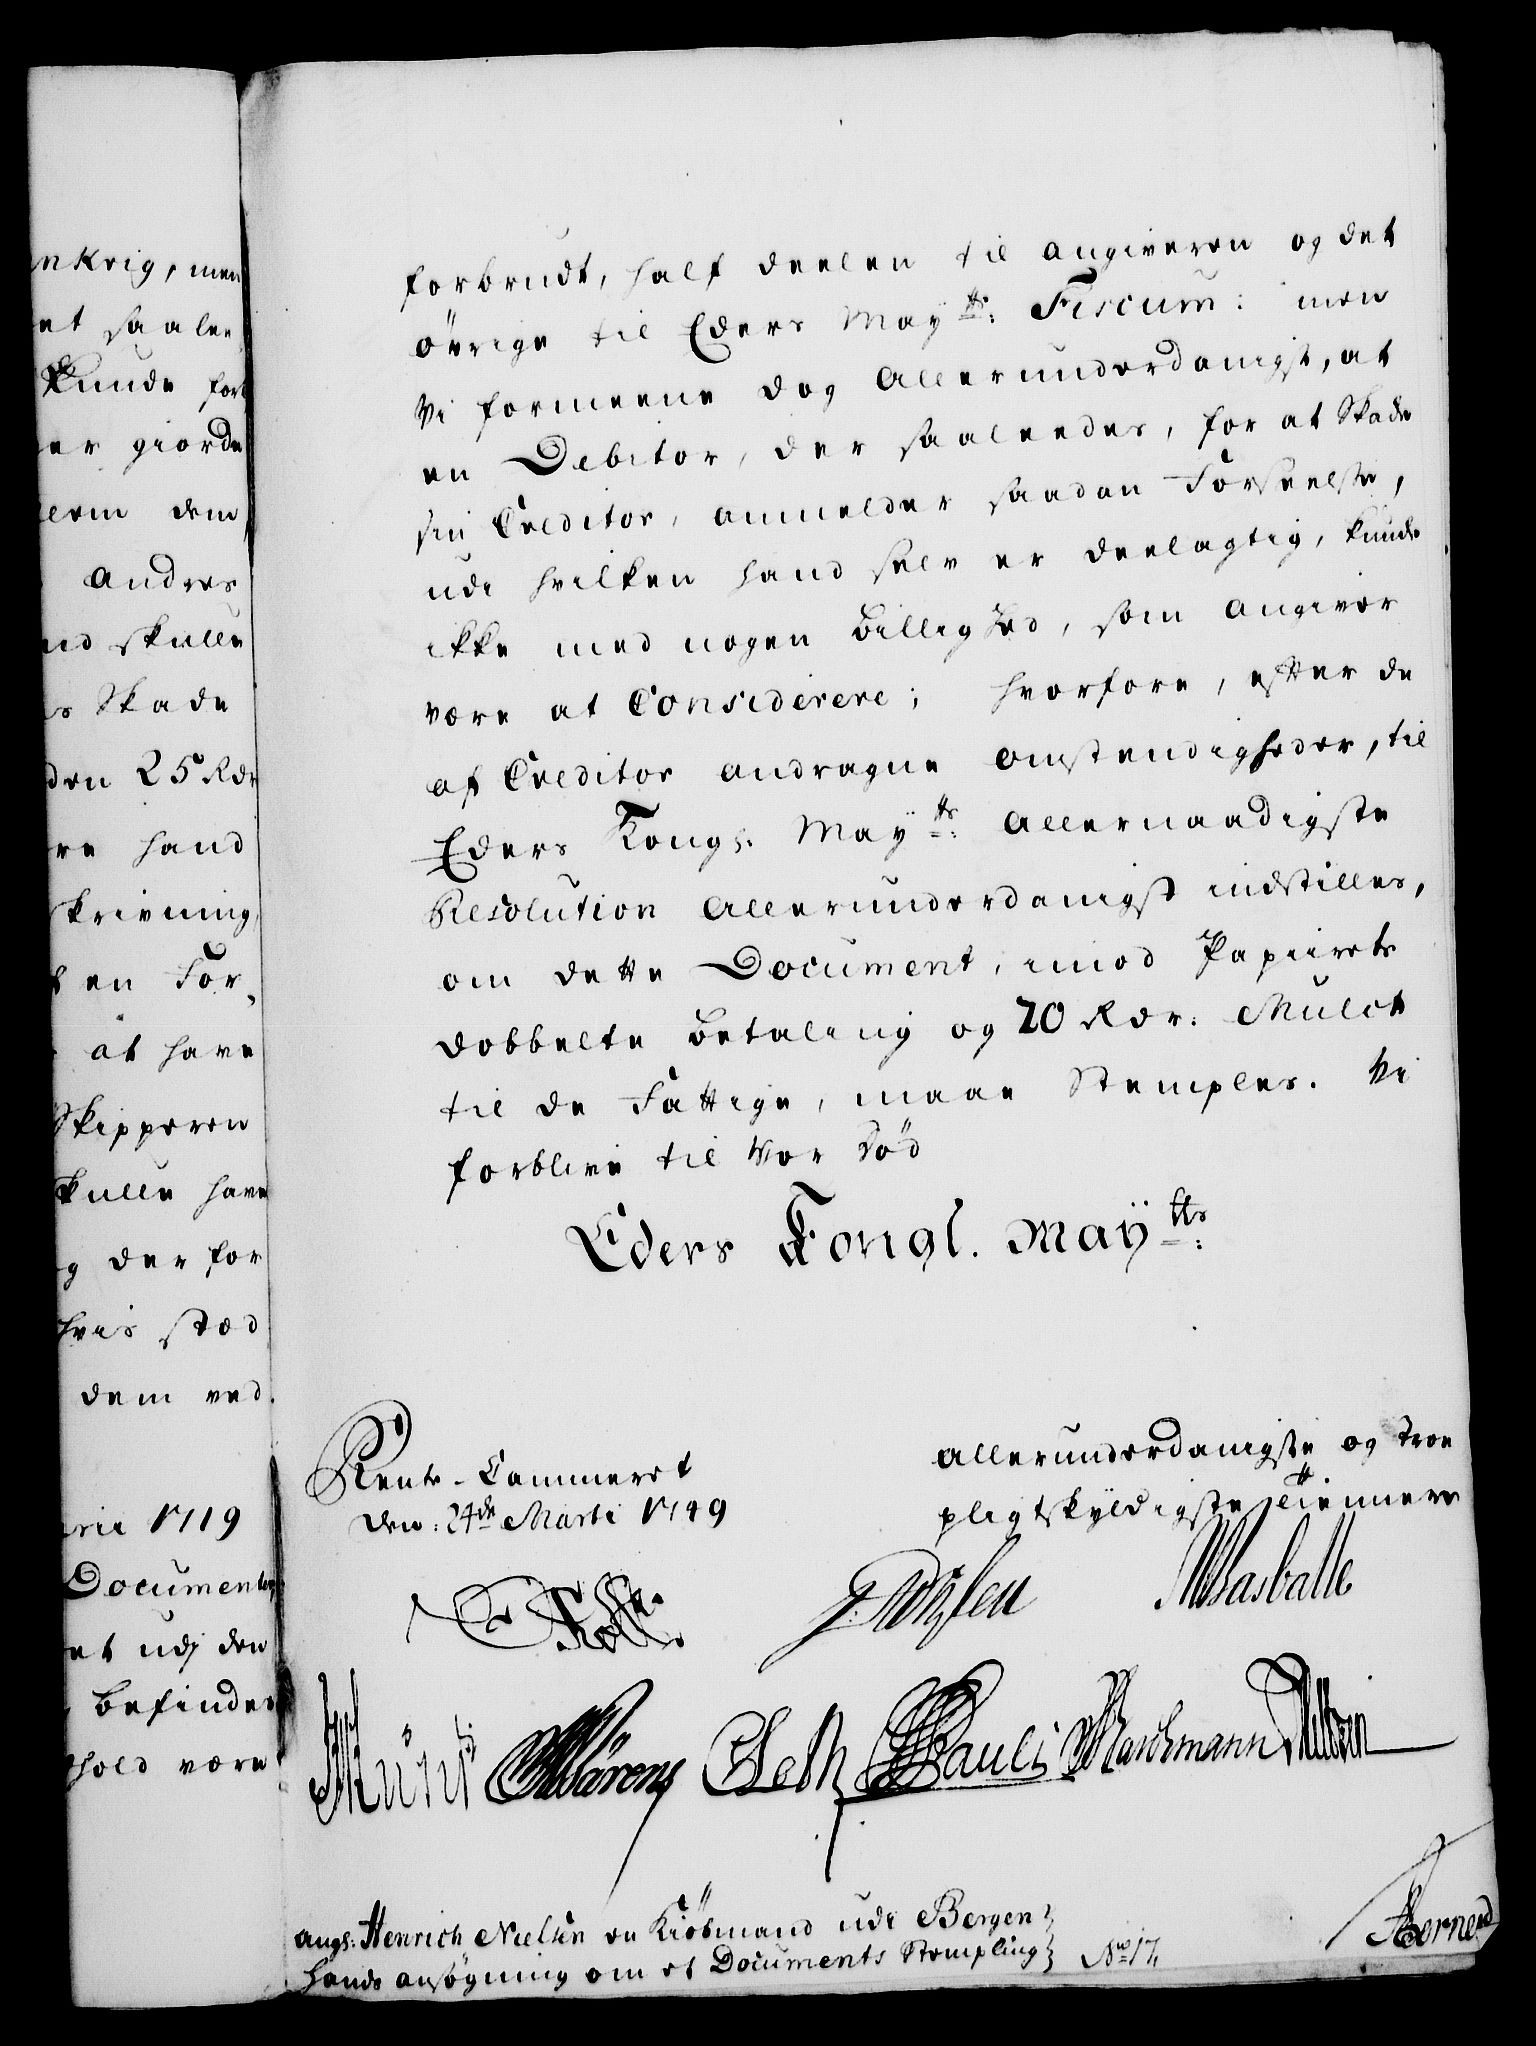 nkrig, men
et saalee
kunde for
er giorde
lem dem
andres
nd skulle
s Skade
den 25 Rdr
re hand
skrivning
t en For„
at have
Skipperen
skulle have
g der for
hvis sted
dem ved.
arii 1719
Documenter
et udj den
befindes
hold være
forbrudt, half deelen til angiveren og det
övrige til Eders May<sup>tts</sup>: Fiscum: men
Vi formeene dog allerunderdanigst, at
en Debitor, der saaleedes, for at Skade
sin Creditor, anmelder saadan Forseelse,
udi hvilken hand selv er deelagtig, kunde
ikke med nogen billighed, som angiver
være at Considerere; hvorfore, efter de
af Creditor andragne omstendigheder, til
Eders Kongs. May<sup>tts</sup>: allernaadigste
Resolution allerunderdanigst indstilles,
om dette Document, imod Papiirets
dobbelte betaling og 20 Rdr: Mulct
til de Fattige, maae Stemples. Vi
forblive til Vor Död
Eders Kongl. Maÿ<sup>tts</sup>:
Rente-Cammeret
den: 24<sup>de</sup> Marti 1749
allerunderdanigste og troe
pligtskyldigste tiennere
Pauli
angs: Henrich Nielsen en Kiöbmand udi Bergen
hands ansögning om et Documents Stempling
No 17,